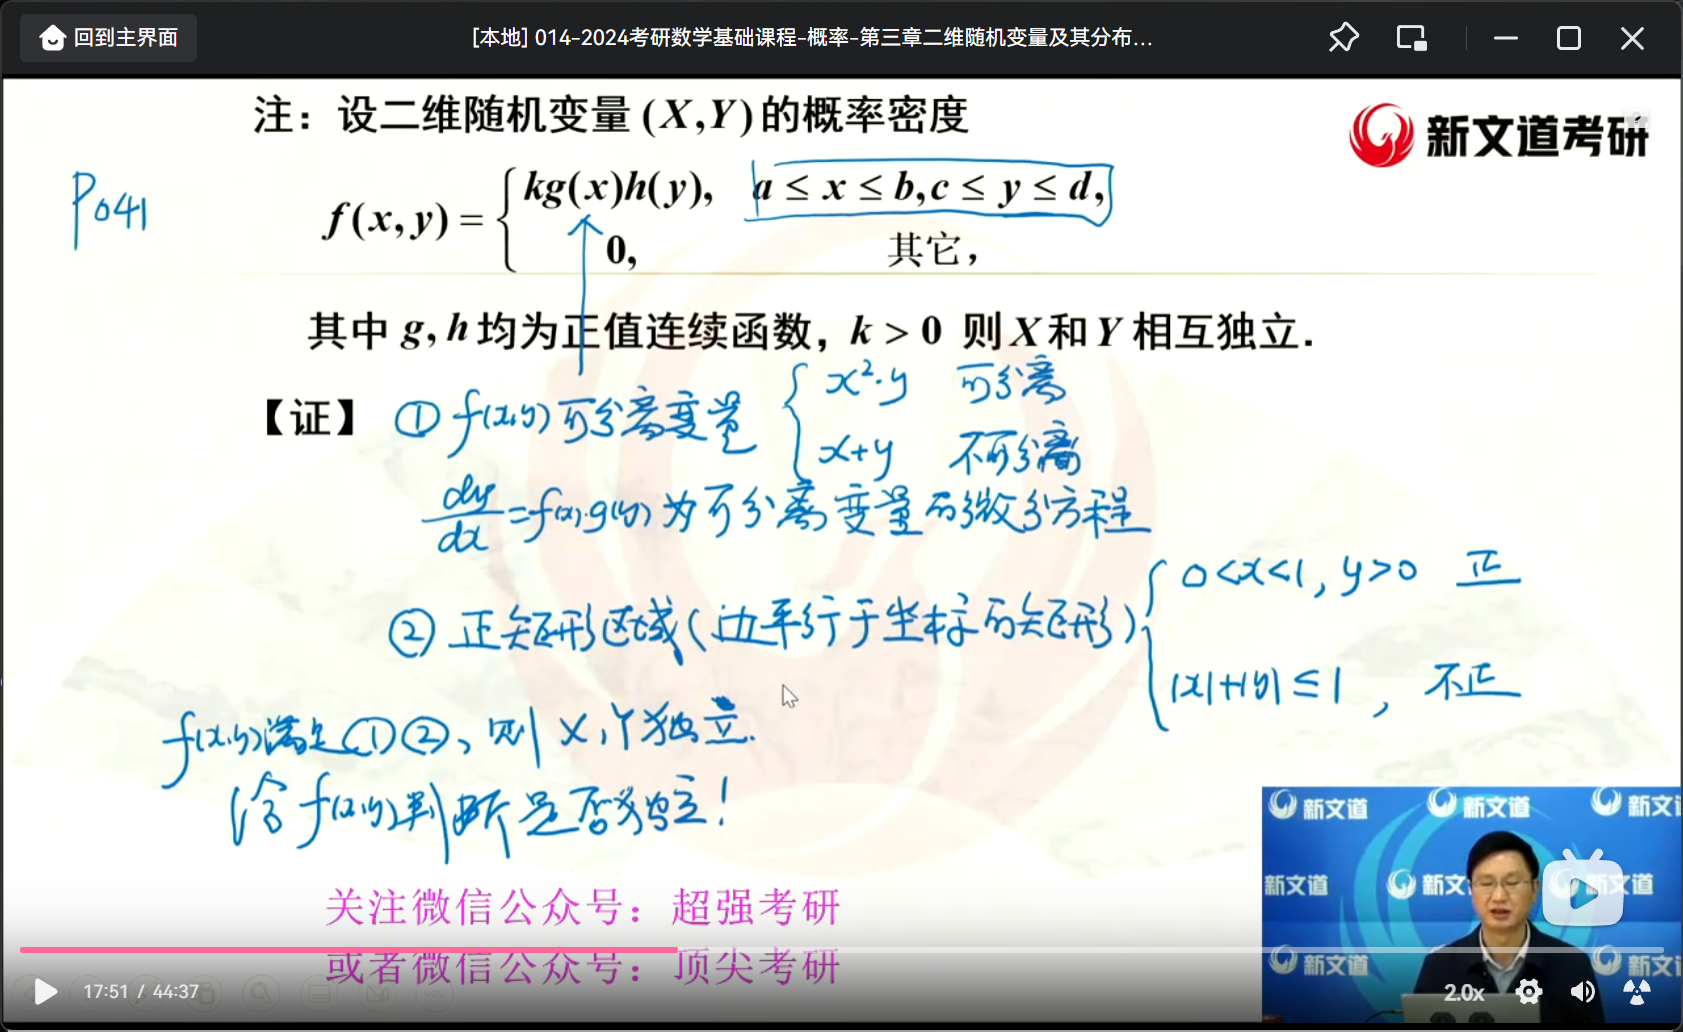 回到主界面
[本地] 014-2024考研数学基础课程-概率-第三章二维随机变量及其分布...
注：设二维随机变量 (X,Y) 的概率密度
新文道考研
P041
f(x,y) = { kg(x)h(y), a ≤ x ≤ b, c ≤ y ≤ d,
0, 其它，
其中 g, h 均为正值连续函数，k > 0 则 X 和 Y 相互独立.
【证】 ① f(x,y) 可分离变量 { x²·y 可分离
x+y 不可分离
dy/dx = f(x)·g(y) 为可分离变量的微分方程
② 正矩形区域(边平行于坐标的矩形) { 0<x<1, y>0 正
|x|+|y| ≤ 1, 不正
f(x,y)满足①②, 则 X,Y独立.
(给 f(x,y)判断是否独立!
关注微信公众号：超强考研
或者微信公众号：顶尖考研
新文道 新文道 新文道
新文道 新文道 新文道
新文道 新文道
17:51 / 44:37
2.0x